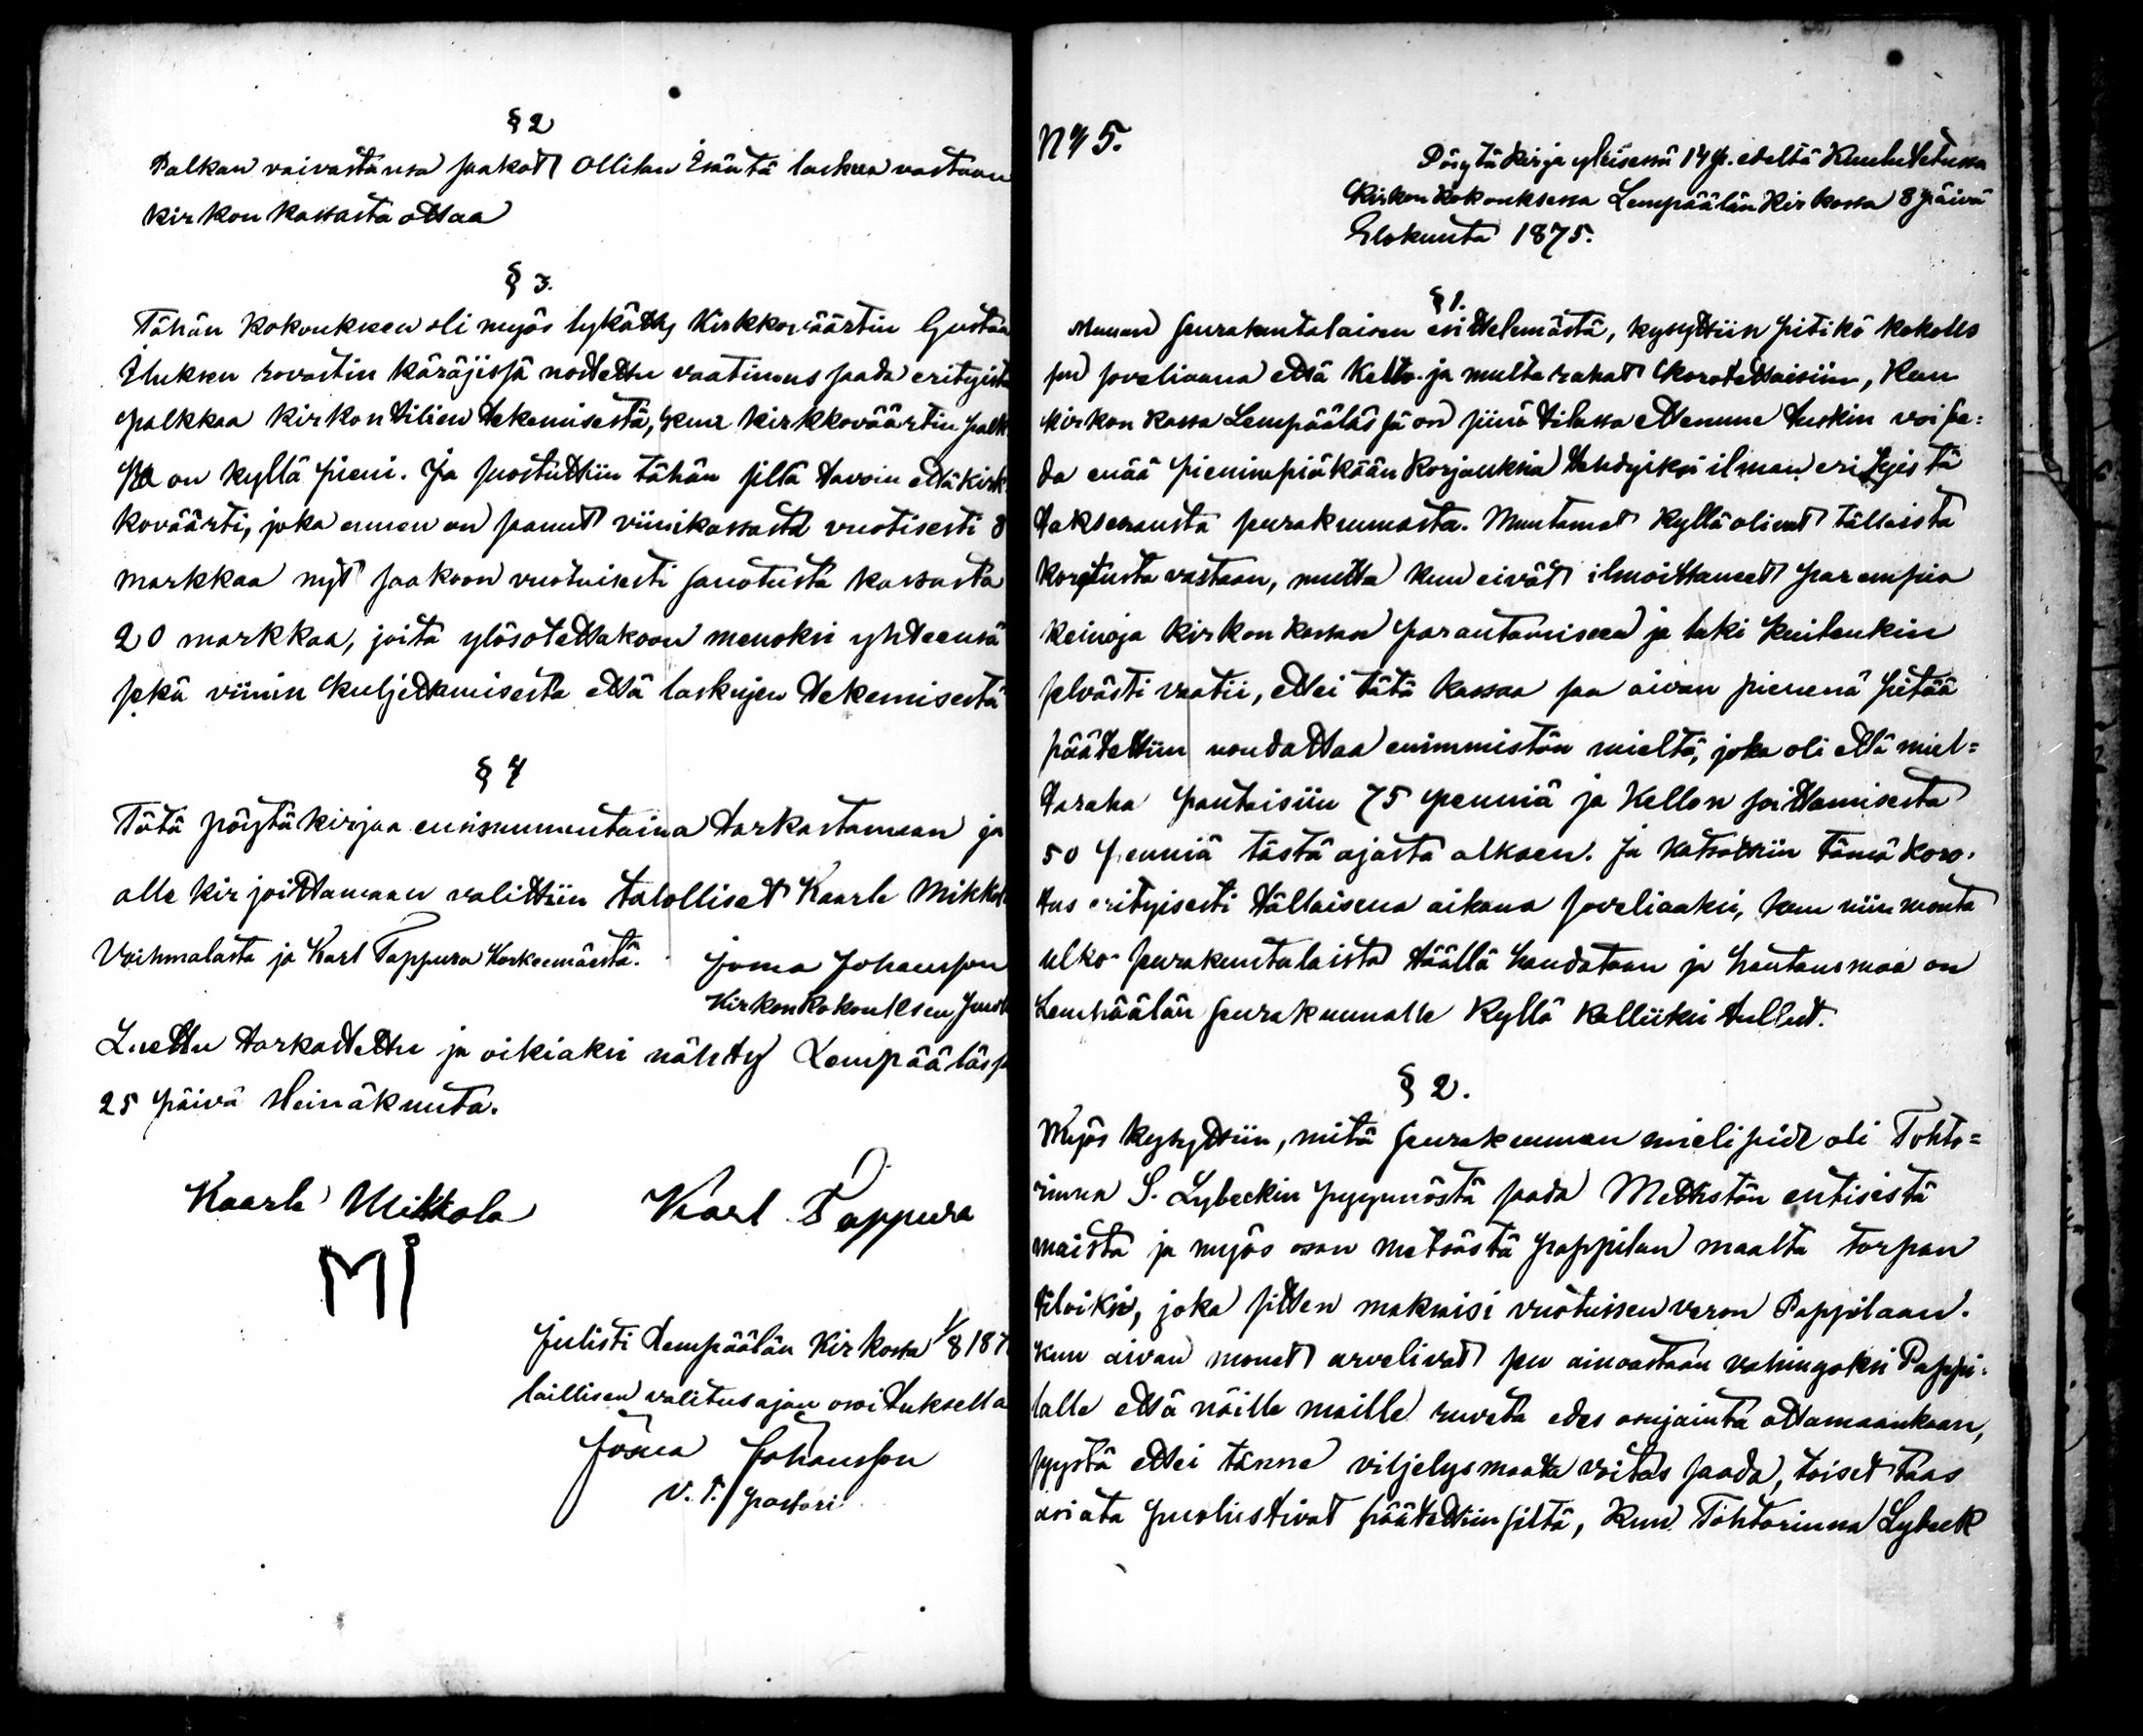 § 2
Palkan vaivastansa saakot Ollilan Isäntä laskua vastaan
kirkon kassasta ottaa
§ 3.
Tähän kokoukseen oli myös lykätty Kirkkoväärtin Gustaa
rovastin käräjissä nostettu vaatimus saada erityistä
palkkaa kirkon tilien tekemisestä, kun kirkkoväärtin palk
ka on kyllä pieni. Ja suostuttiin tähän sillä tavoin että kirk
koväärti, joka ennen on saanut viinikassasta vuotisesti 8
markkaa nyt saakoon vuotuisesti sanotusta kassasta
20 markkaa, joita ylösotettakoon menoksi yhteensä
sekä viinin kuljettamisesta että laskujen tekemisestä
§ 4
Tätä pöytäkirjaa ensisunnuntaina tarkastamaan ja
alle kirjoittamaan valittiin talolliset Kaarle Mikkol
Vaihmalasta ja Karl Tappura Korkeemäestä.
Josua Johansson
Kirkonkokouksen
Luettu tarkastettu ja oikiaksi nähty Lempääläss
25 päivä Heinäkuuta.
Kaarle Mikkola Karl Tappura
MI
Julisti Lempäälän Kirkossa 1/8 187
laillisen valitusajan osoituksella
Josua Johansson
v. t. pastori
No 5.
Pöytäkirja yleisessä 14 p. edeltä Kuulutetussa
Kirkonkokouksessa Lempäälän Kirkossa 8 päivä
Elokuuta 1875.
§ 1.
Muuan seurakuntalaisen esittelemästä, kysyttiin pitikö kokous
sen soveliaana että Kello- ja multarahat korotettaisiin, Kun
kirkon kassa Lempäälässä on siinä tilassa ettemme tuskin voi saa=
da enää pienimpiäkään korjauksia tehdyiksi ilman erityistä
takseerausta seurakunnasta. Muutamat kyllä olivat tällaista
korotusta vastaan, mutta kun eivät ilmoittaneet parempia
keinoja kirkon kassan parantamiseen ja laki kuitenkin
selvästi vaatii, ettei tätä kassaa saa aivan pienenä pitää
päätettiin noudattaa enimmistön mieltä, joka oli että mul=
taraha pantaisiin 75 penniä ja Kellon soittamisesta
50 penniä tästä ajasta alkaen. Ja katsottiin tämä koro-
tus erityisesti tällaisena aikana soveliaaksi, kun niin monta
ulko-seurakuntalaista täällä haudataan ja hautausmaa on
Lempäälän seurakunnalle kyllä kalliiksi tullut.
§ 2.
Myös kysyttiin, mitä seurakunnan mielipide oli Tohto=
rinna S. Lybeckin pyynnöstä saada Mettistön entisistä
maista ja myös osan metsästä pappilan maalta torpan
tiloiksi, joka sitten maksaisi vuotuissen veron Pappilaan.
Kun aivan monet arvelivat sen ainoastaan vahingoksi Pappi=
lalle että näille maille ruveta edes asujainta ottamaankaan,
syystä ettei tänne viljelysmaata voitas saada, toiset taas
asiata puolustivat päätettiin siltä, kun Tohtorinna Lybeck